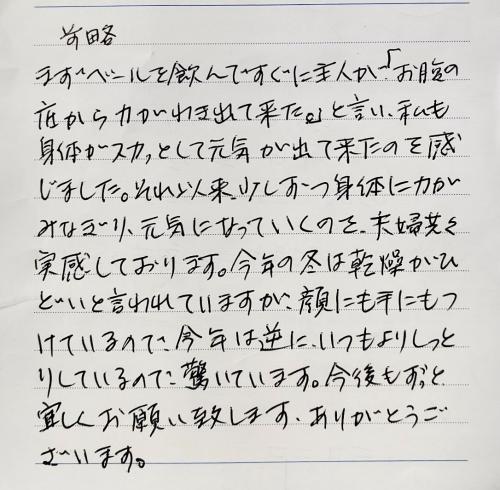 前略
まずベールを飲んですぐに主人が「お腹の
底から力がわき出て来た。」と言い、私も
身体がスカッとして元気が出て来たのを感
じました。それ以来、少しずつ身体に力が
みなぎり、元気になっていくのを、夫婦共々
実感しております。今年の冬は乾燥がひ
どいと言われていますが、顔にも手にもつ
けているので、今年は逆に、いつもよりしっと
りしているので、驚いています。今後もずっと
宜しくお願い致します、ありがとうご
ざいます。